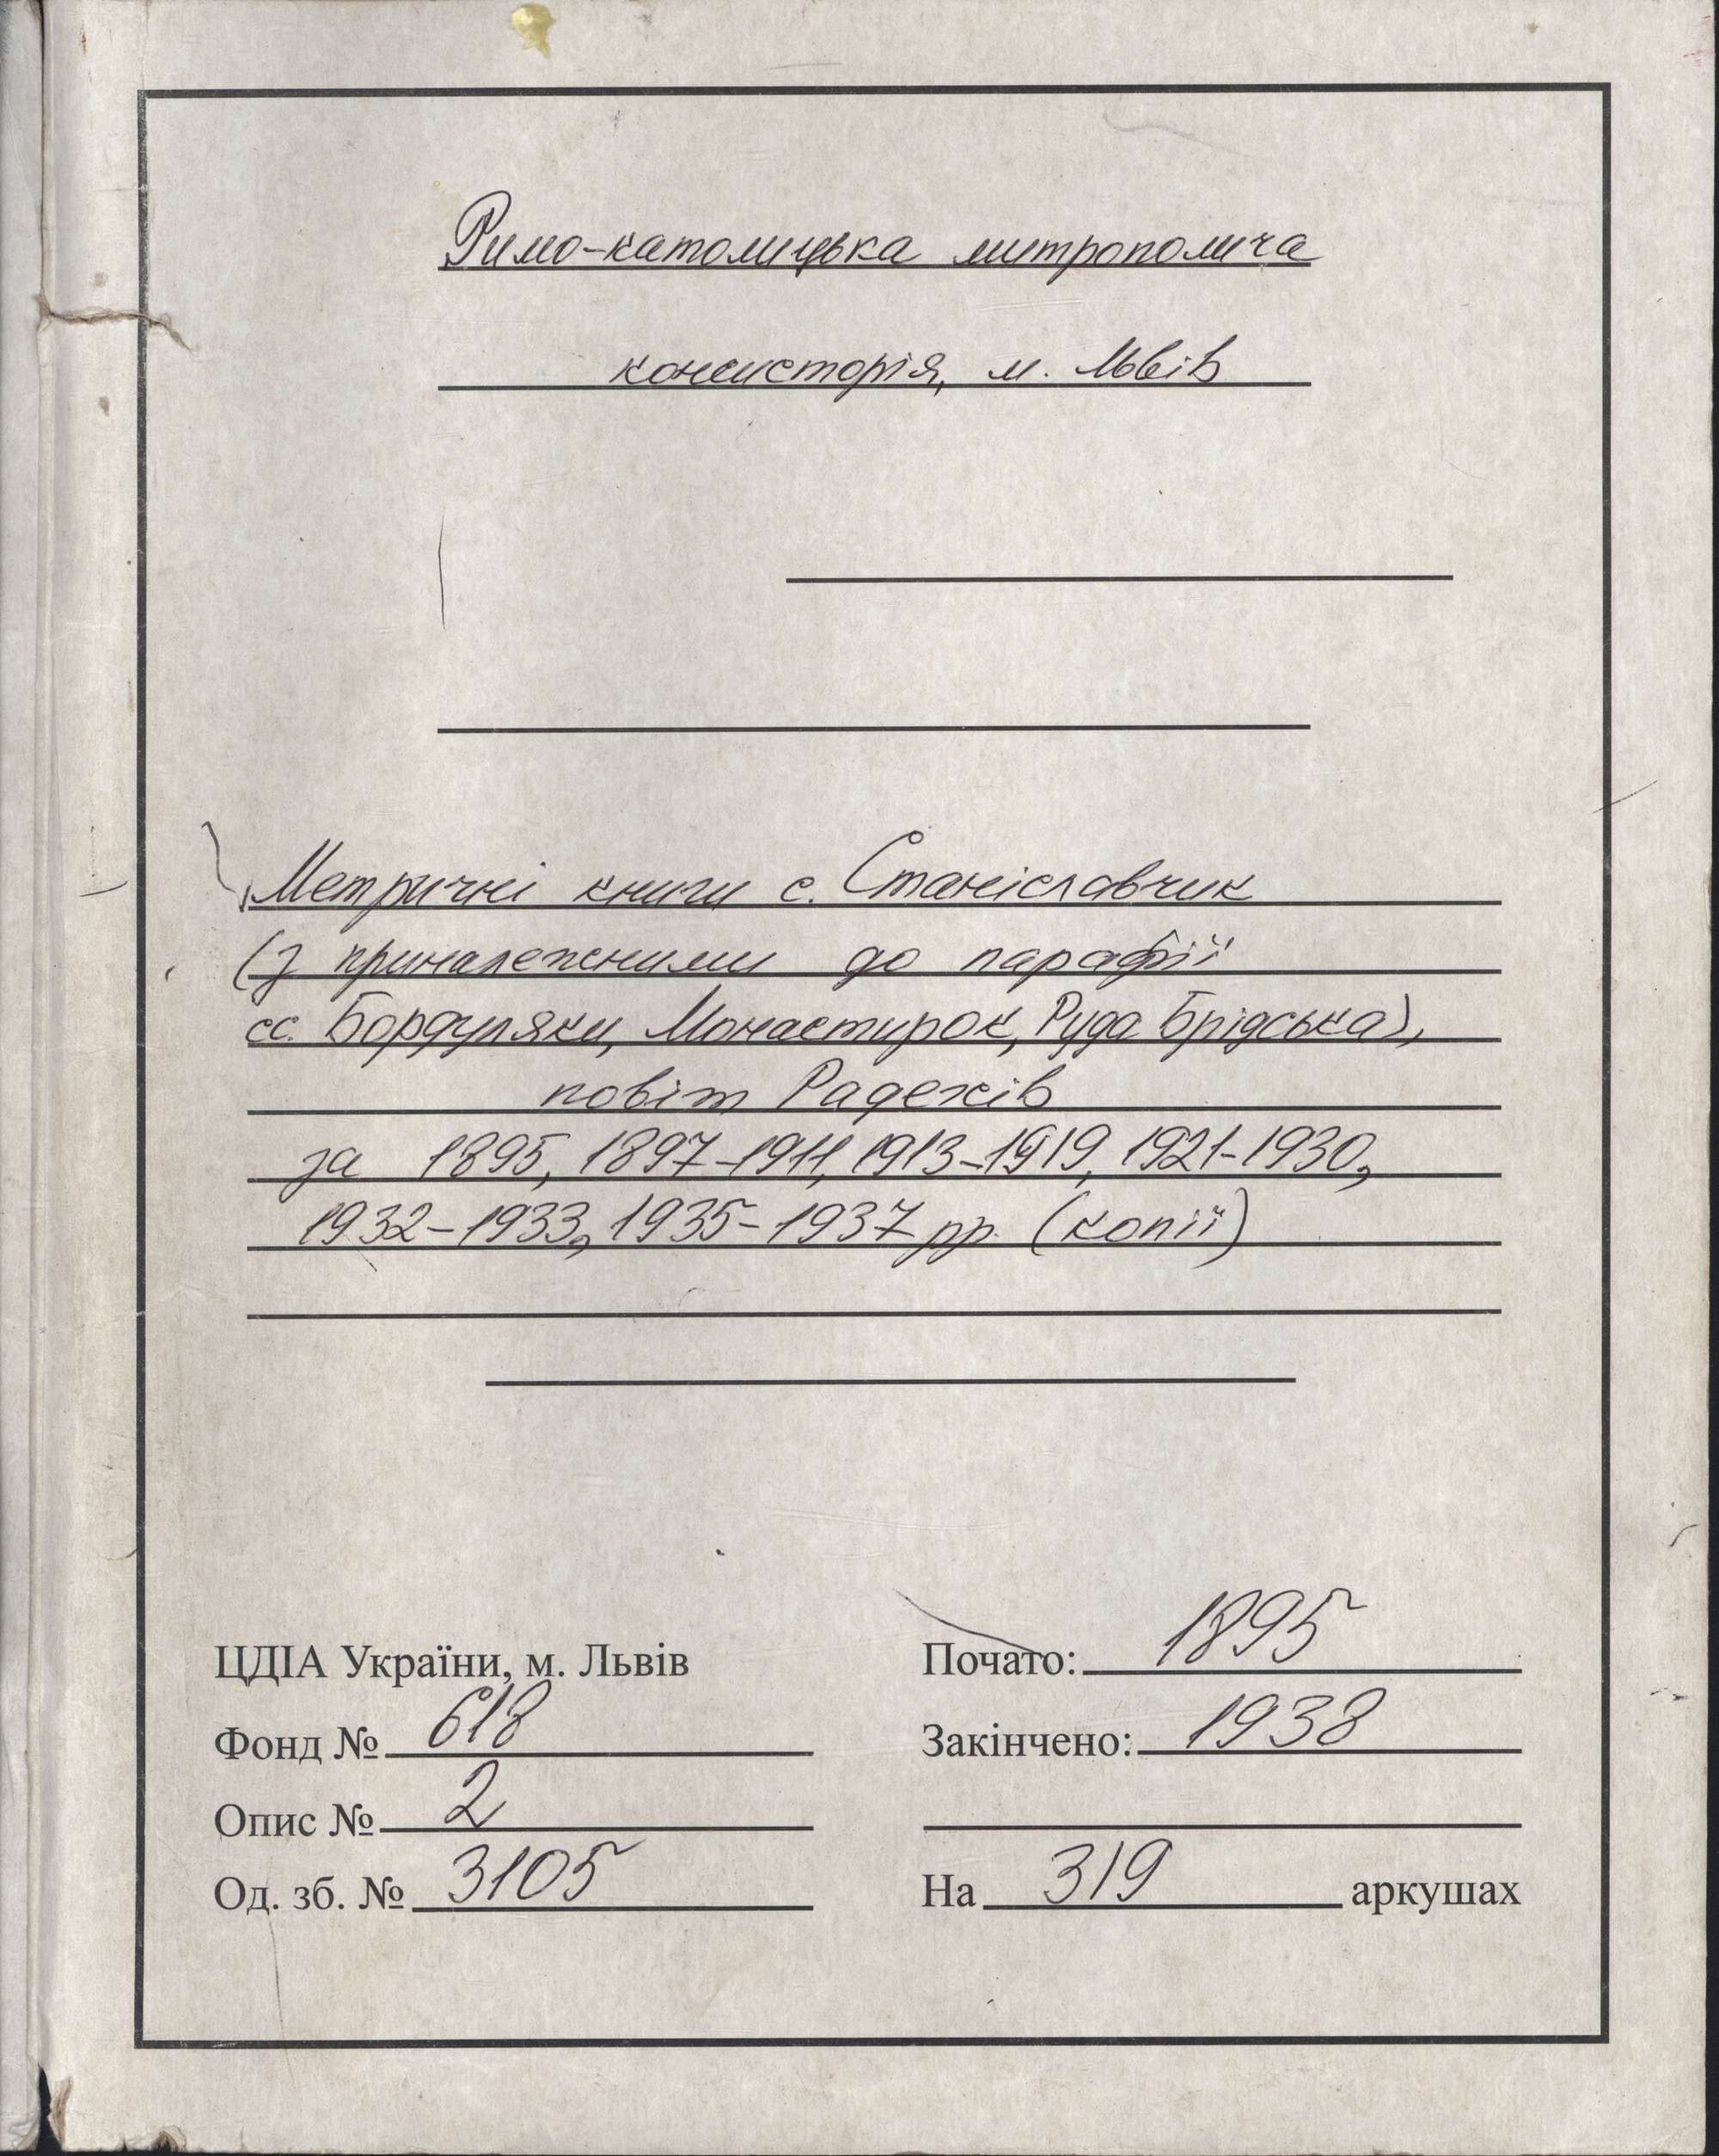 Римо-католицька митрополича
консисторія, м. Львів
Метричні книги с. Станіславчик
(з приналежними до парафії
сс. Бордуляки, Монастирок, Руда Брідська),
повіт Радехів
за 1895, 1897-1911, 1913-1919, 1921-1930,
1932-1933, 1935-1937 рр. (копії)
ЦДІА України, м. Львів
Фонд № 618
Опис № 2
Од. зб. № 3105
Почато: 1895
Закінчено: 1938
На 319 аркушах